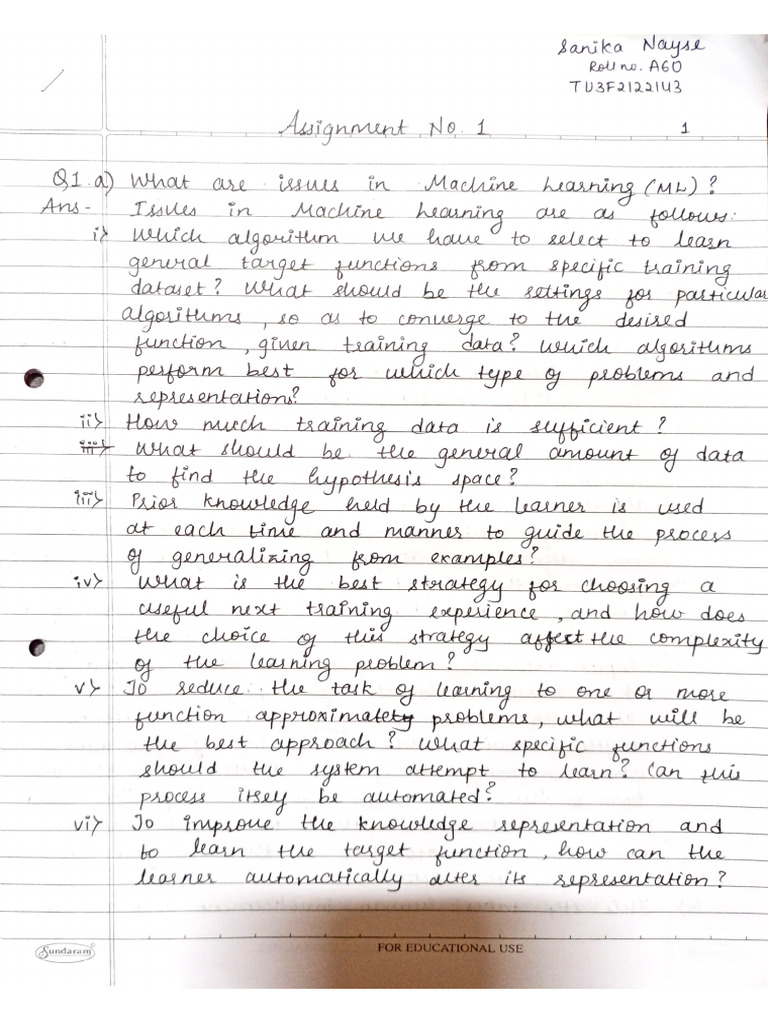 Sanika Nayse
Roll no. A60
TU3F2122143
Assignment No. 1
1
Q1. a) What are issues in Machine Learning (ML) ?
Ans - Issues in Machine Learning are as follows:
i> Which algorithm we have to select to learn
general target functions from specific training
dataset? What should be the settings for particular
algorithms, so as to converge to the desired
function, given training data? Which algorithms
perform best for which type of problems and
representations?
ii> How much training data is sufficient ?
iii> What should be the general amount of data
to find the hypothesis space?
iii> Prior knowledge held by the learner is used
at each time and manner to guide the process
of generalizing from examples?
iv> What is the best strategy for choosing a
useful next training experience, and how does
the choice of this strategy affect the complexity
of the learning problem ?
v> To reduce the task of learning to one or more
function approximate problems, what will be
the best approach ? What specific functions
should the system attempt to learn? Can this
process itself be automated?
vi> To improve the knowledge representation and
to learn the target function, how can the
learner automatically alter its representation ?
Sundaram
FOR EDUCATIONAL USE